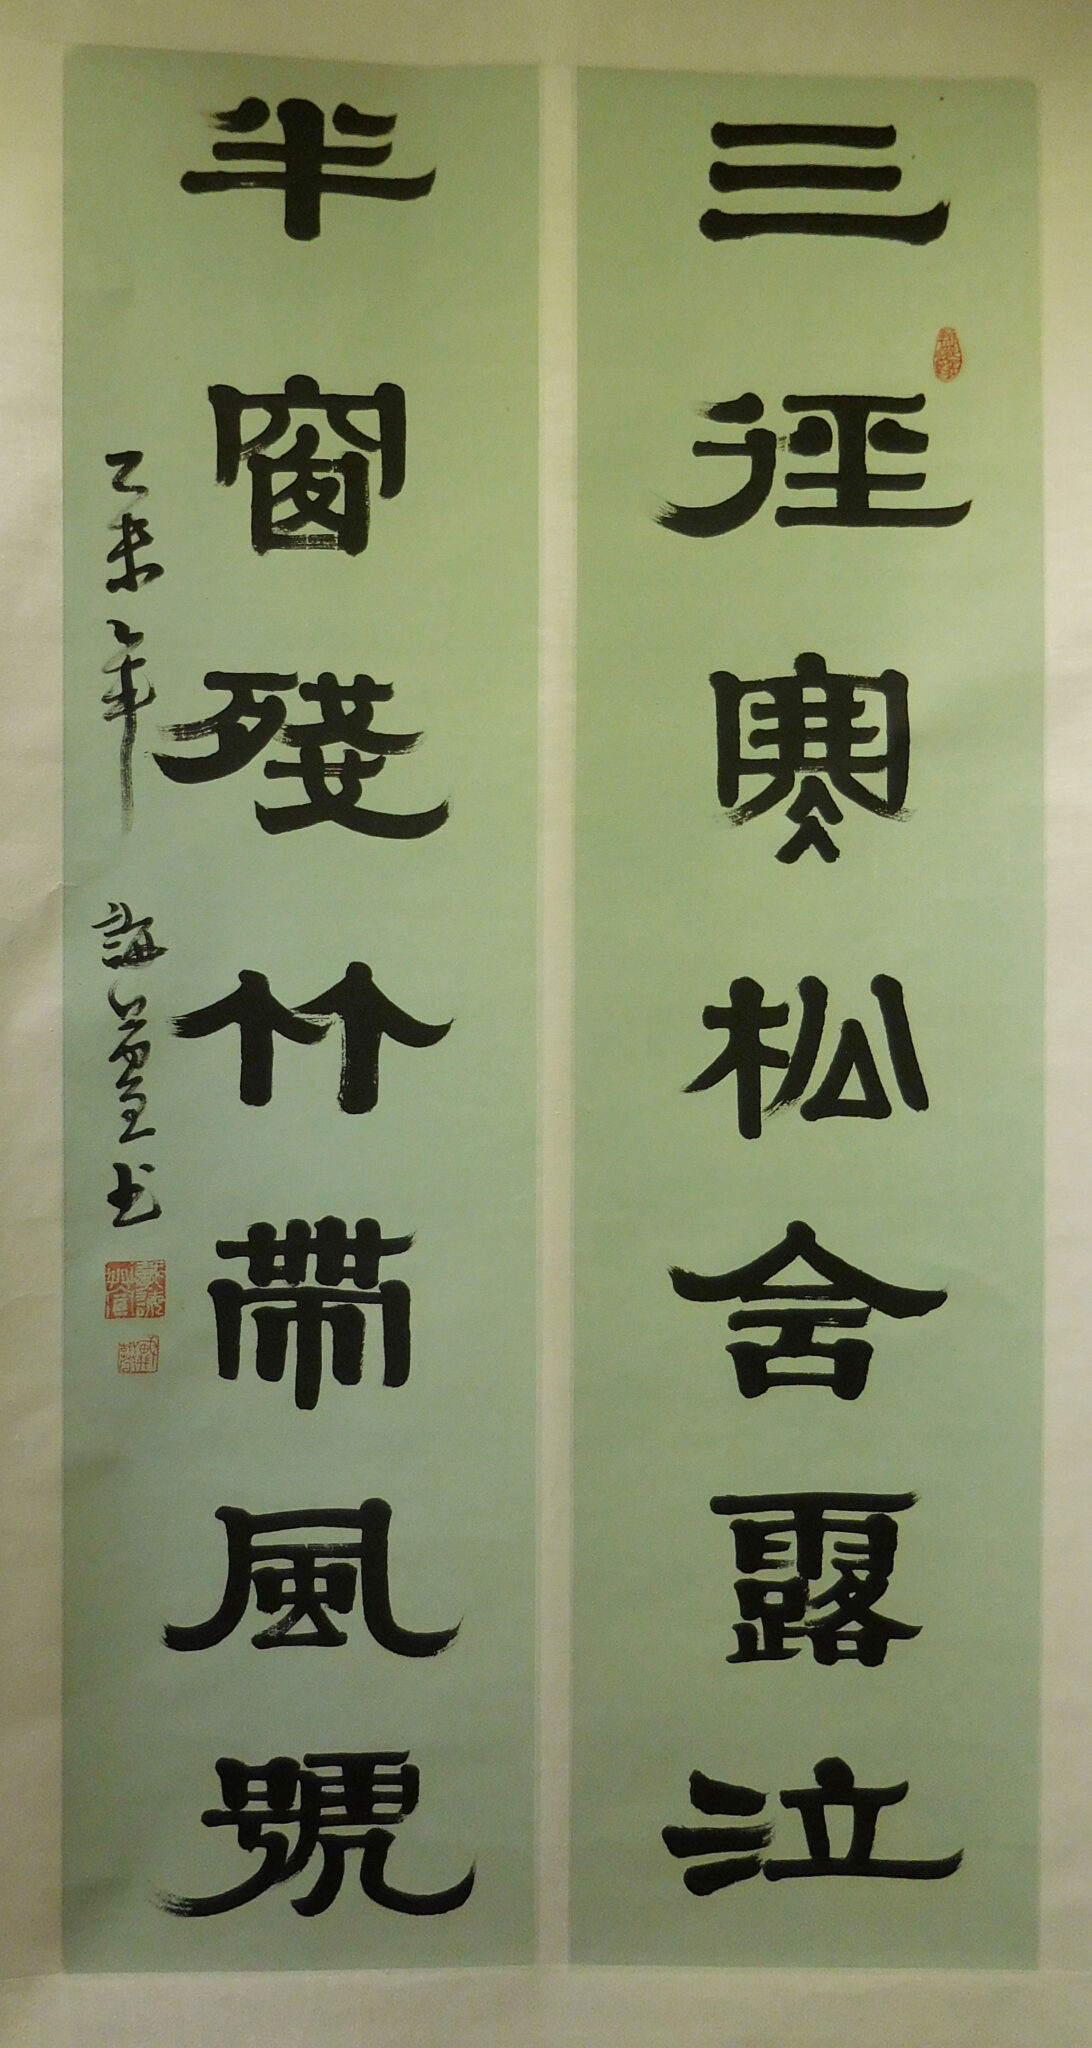 三徑寒松含露泣
半窗殘竹帶風號
乙未年 詩蘭書